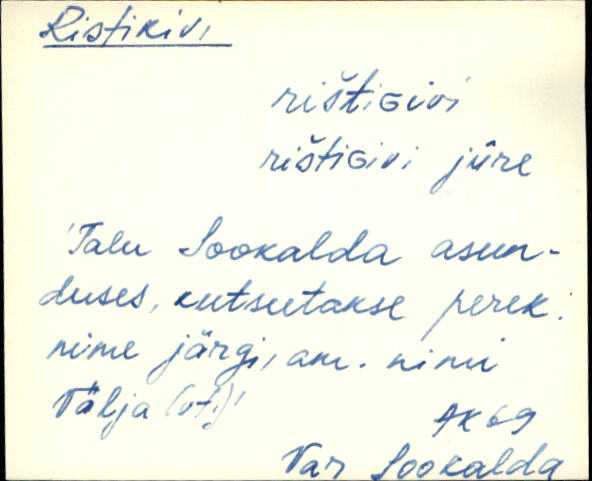 Ristikivi
rištiGivi
rištiGivi jüre
'Talu Sookalda asun-
duses, kutsutakse perek.
nime järgi, am. nimi
Välja (vt.)'
AK 69
Var Sookalda